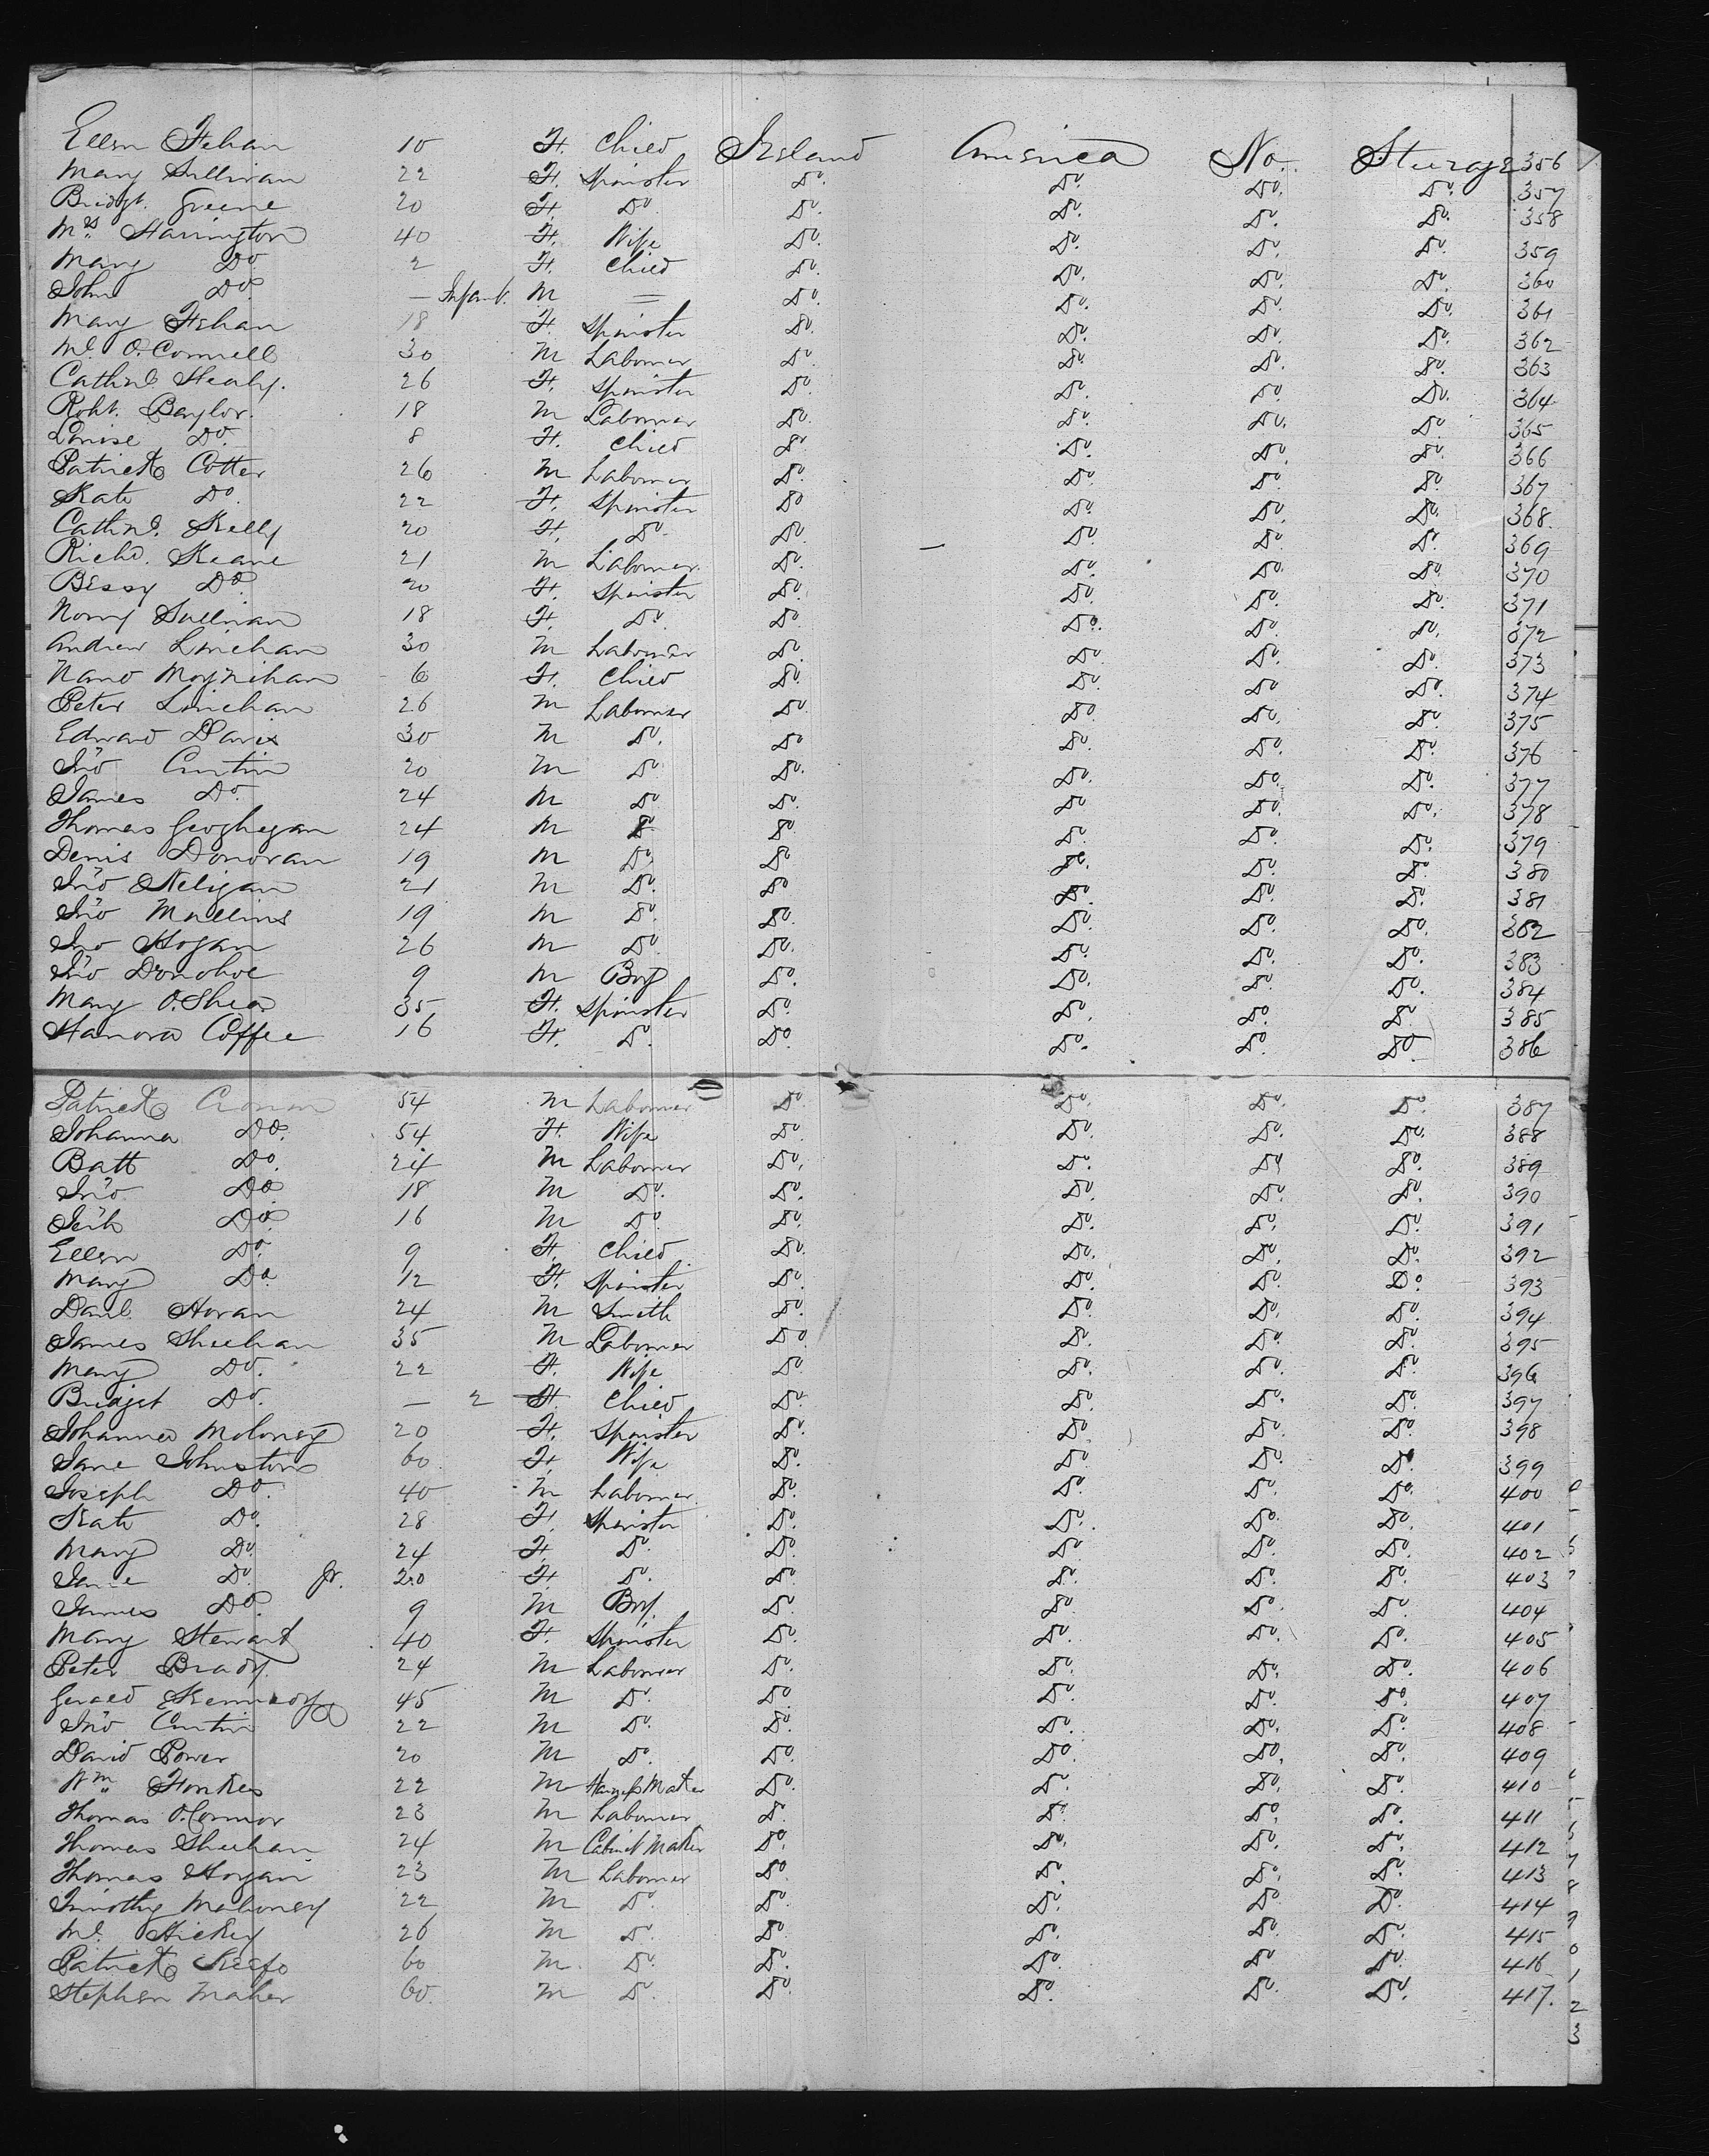 Ellen Fehan 10 F. Child Ireland America No. Steerage 356
Mary Sullivan 22 F. Spinster Do. Do. Do. Do. 357
Bridgt. Greene 20 F. Do Do. Do. Do. Do. 358
Mrs. Harrington 40 F. Wife Do. Do. Do. Do. 359
Mary Do. 2 F. Child Do. Do. Do. Do. 360
John Do. — Infant. M = Do. Do. Do. Do. 361
Mary Fehan 18 F. Spinster Do. Do. Do. Do. 362
Ml. O.Connell 30 M Labourer Do. Do. Do. Do. 363
Cathne Healy. 26 F. Spinster Do. Do. Do. Do. 364
Robt. Baylor. 18 M Labourer Do. Do. Do. Do. 365
Louise Do. 8 F. Child Do. Do. Do. Do. 366
Patrick Cotter 26 M Labourer Do. Do. Do. Do. 367
Kate Do. 22 F. Spinster Do Do. Do. Do. 368
Cathne. Kelly 20 F. Do. Do. Do. Do. Do. 369
Richd. Keane 21 M Labourer. Do. Do. Do. Do. 370
Bessy Do. 20 F. Spinster Do. Do. Do. Do. 371
Norry Sullivan 18 F. Do. Do. Do. Do. Do. 372
Andrew Linehan 30 M Labourer Do. Do. Do. Do. 373
Nano Moynihan 6 F. Child Do. Do. Do. Do. 374
Peter Linehan 26 M Labourer Do. Do. Do. Do. 375
Edward Davis 30 M Do. Do. Do. Do. Do. 376
Jno Curtin 20 M Do. Do. Do. Do. Do. 377
James Do. 24 M Do. Do. Do. Do. Do. 378
Thomas Geoghegan 24 M Do Do. Do. Do. Do. 379
Denis Donovan 19 M Do. Do. Do. Do. Do. 380
Jno Neligan 21 M Do. Do. Do. Do. Do. 381
Jno Mullins 19 M Do. Do. Do. Do. Do. 382
Jno Hogan 26 M Do. Do. Do. Do. Do. 383
Jno Donohoe 9 M Boy Do. Do. Do. Do. 384
Mary O.Shea 35 F. Spinster Do. Do. Do. Do. 385
Hanora Coffee 16 F. Do. Do. Do. Do. Do. 386
Patrick Cronin 54 M Labourer Do. Do. Do. Do. 387
Johanna Do. 54 F. Wife Do. Do. Do. Do. 388
Batt Do. 24 M Labourer Do. Do. Do. Do. 389
Jno. Do 18 M Do. Do. Do. Do. Do. 390
Do. 16 M Do. Do. Do. Do. Do. 391
Ellen Do. 9 F. Child Do. Do. Do. Do. 392
Mary Do. 12 F. Spinster Do. Do. Do. Do. 393
Danl. Horan 24 M Smith Do. Do. Do. Do. 394
James Sheehan 35 M Labourer Do. Do. Do. Do. 395
Mary Do. 22 F. Wife Do. Do. Do. Do. 396
Bridget Do. — 2 F. Child Do. Do. Do. Do. 397
Johanna Moloney 20 F. Spinster Do. Do. Do. Do. 398
Jane Johnston 60 F. Wife Do. Do. Do. Do. 399
Joseph Do. 40 M Labourer Do. Do. Do. Do. 400
Kate Do. 28 F. Spinster Do. Do. Do. Do. 401
Mary Do. 24 F. Do. Do. Do. Do. Do. 402
Jane Do. Jr. 20 F. Do. Do. Do. Do. Do. 403
James Do. 9 M Boy. Do. Do. Do. Do. 404
Mary Stewart 40 F. Spinster Do. Do. Do. Do. 405
Peter Brady. 24 M Labourer Do. Do. Do. Do. 406
Gerald Kennedy 45 M Do. Do. Do. Do. Do. 407
Jno Curtin 22 M Do. Do. Do. Do. Do. 408
David Power 20 M Do. Do. Do. Do. Do. 409
Wm 22 M Harness Maker Do. Do. Do. Do. 410
Thomas O.Connor 23 M Labourer Do. Do. Do. Do. 411
Thomas Sheehan 24 M Cabinet Maker Do. Do. Do. Do. 412
Thomas Horgan 23 M Labourer Do. Do. Do. Do. 413
Timothy Mahoney 22 M Do. Do. Do. Do. Do. 414
Ml. Hickey 26 M Do. Do. Do. Do. Do. 415
Patrick Keefe 60 M. Do. Do. Do. Do. Do. 416
Stephen Maher 60. M Do. Do. Do. Do. Do. 417.